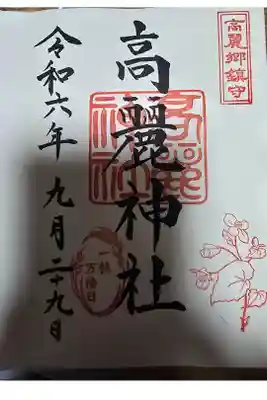 高麗郷鎮守
高麗神社
一粒
万倍日
令和六年 九月二十九日